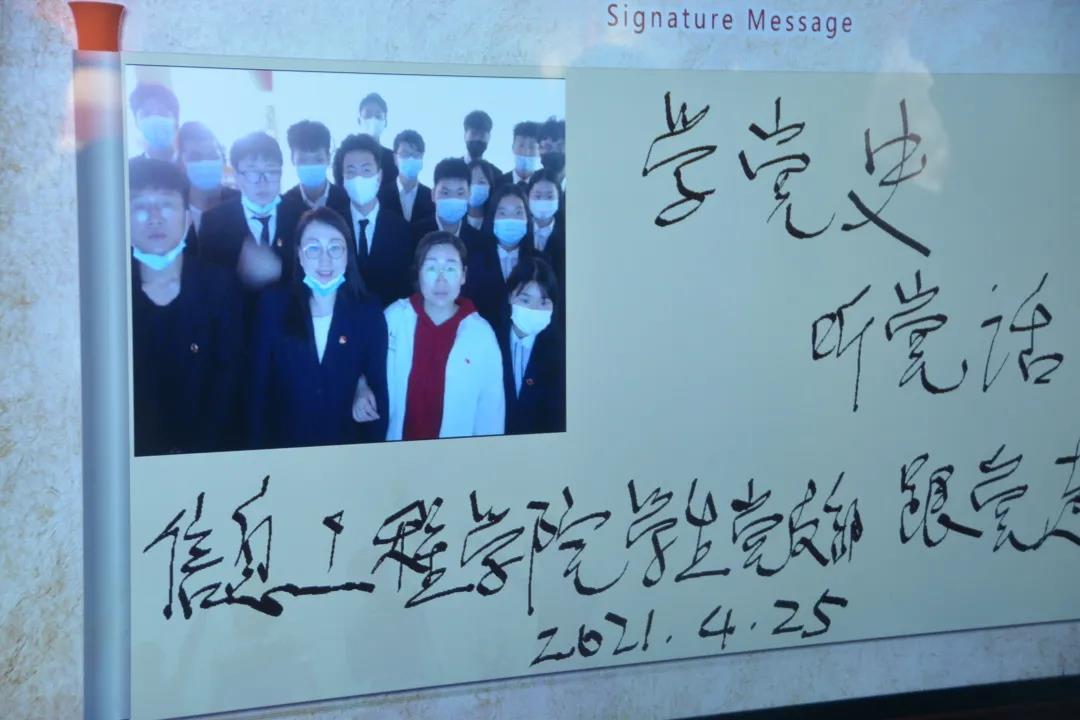 Signature Message
学党史
听党话
跟党走
信息工程学院学生党支部
2021.4.25